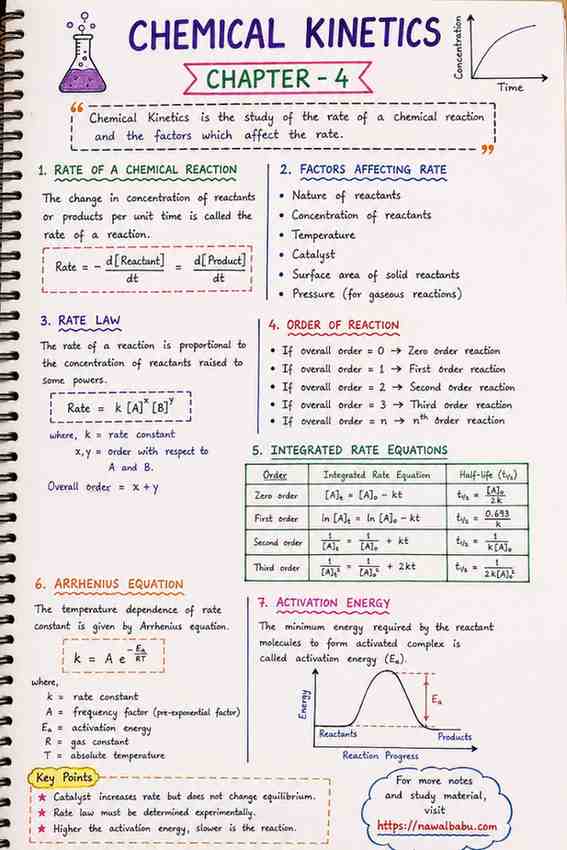 CHEMICAL KINETICS
CHAPTER - 4
Concentration
Time
“ Chemical Kinetics is the study of the rate of a chemical reaction
and the factors which affect the rate. ”
1. RATE OF A CHEMICAL REACTION
The change in concentration of reactants
or products per unit time is called the
rate of a reaction.
Rate = - d[Reactant]/dt = d[Product]/dt
2. FACTORS AFFECTING RATE
• Nature of reactants
• Concentration of reactants
• Temperature
• Catalyst
• Surface area of solid reactants
• Pressure (for gaseous reactions)
3. RATE LAW
The rate of a reaction is proportional to
the concentration of reactants raised to
some powers.
Rate = k [A]^x [B]^y
where, k = rate constant
x,y = order with respect to
A and B.
Overall order = x + y
4. ORDER OF REACTION
• If overall order = 0 → Zero order reaction
• If overall order = 1 → First order reaction
• If overall order = 2 → Second order reaction
• If overall order = 3 → Third order reaction
• If overall order = n → nth order reaction
5. INTEGRATED RATE EQUATIONS
Order Integrated Rate Equation Half-life (t₁/₂)
Zero order [A]t = [A]₀ - kt t₁/₂ = [A]₀/2k
First order ln [A]t = ln [A]₀ - kt t₁/₂ = 0.693/k
Second order 1/[A]t = 1/[A]₀ + kt t₁/₂ = 1/k[A]₀
Third order 1/[A]t² = 1/[A]₀² + 2kt t₁/₂ = 1/2k[A]₀²
6. ARRHENIUS EQUATION
The temperature dependence of rate
constant is given by Arrhenius equation.
k = A e^(-Ea/RT)
where,
k = rate constant
A = frequency factor (pre-exponential factor)
Ea = activation energy
R = gas constant
T = absolute temperature
7. ACTIVATION ENERGY
The minimum energy required by the reactant
molecules to form activated complex is
called activation energy (Ea).
Energy
Ea
Reactants
Products
Reaction Progress
Key Points
★ Catalyst increases rate but does not change equilibrium.
★ Rate law must be determined experimentally.
★ Higher the activation energy, slower is the reaction.
For more notes
and study material,
visit
https://nawalbabu.com